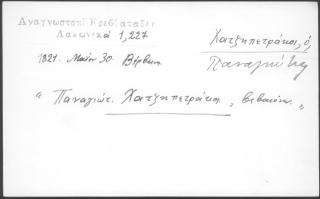 Αναγνωστοπ Κρεββατάδες
Λακωνικά 1,227
1821. Μαΐου 30. Βέρβενα
Χατζηπετράκος, ὁ,
Παναγιώτης
" Παναγιώτ. Χατζηπετράκος, βεβαιόνω. "